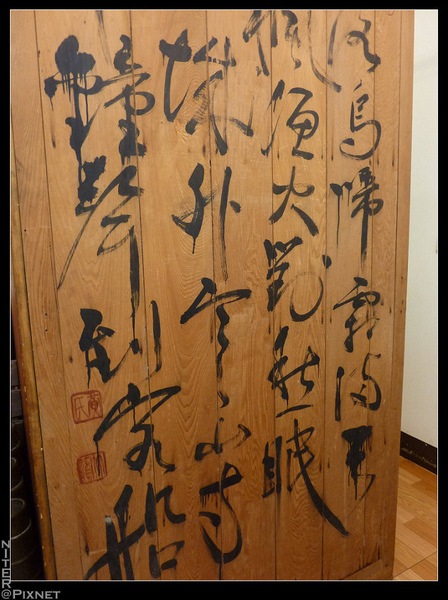 落烏啼霜滿天
楓漁火對愁眠
城外寒山寺
鐘聲到客船
NITER
@PIXNET